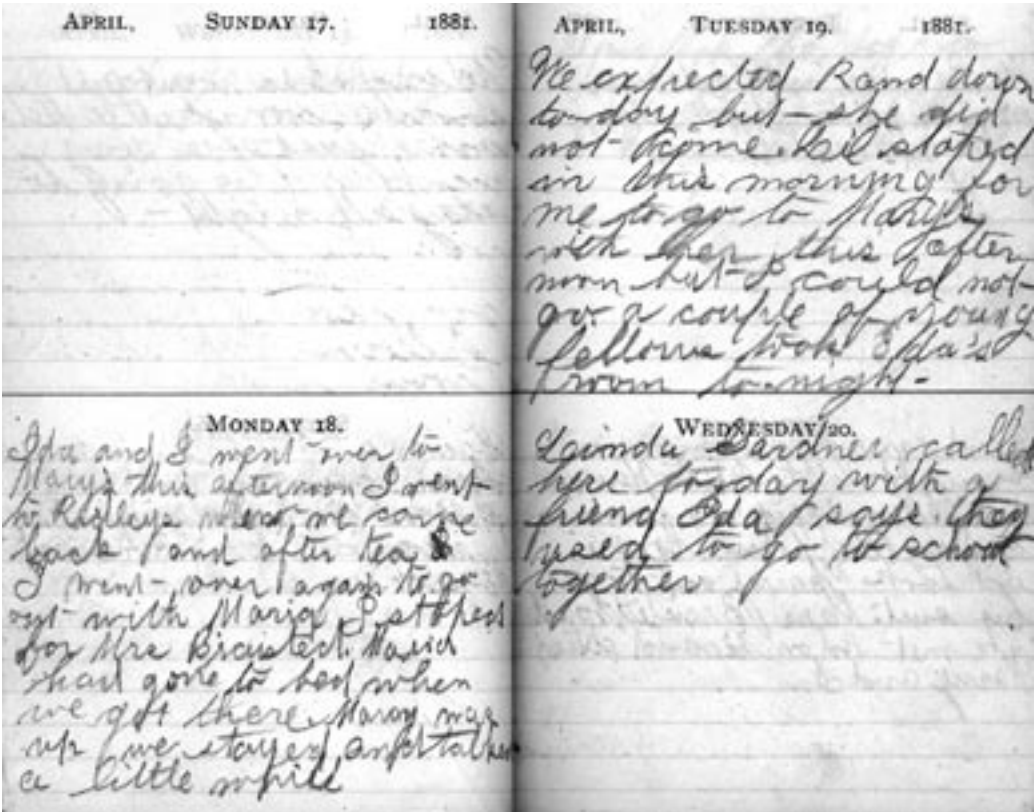 APRIL, SUNDAY 17. 1881.
MONDAY 18.
Ida and I went over to
Mary's this afternoon I went
to when we come
back and after tea
I went over again to go
out with Maria I stoped
for Mrs Maria
had gone to bed when
we got there Mary was
up we stayed and talked
a little while
APRIL, TUESDAY 19. 1881.
We expected Rand down
to-day but she did
not come. stoped
in this morning for
me to go to Mary's
with her this after
noon but I could not
go. a couple of young
fellows took Ida's
room to-night-
WEDNESDAY 20.
Gardner called
here to-day with a
friend Ida says they
used to go to school
together